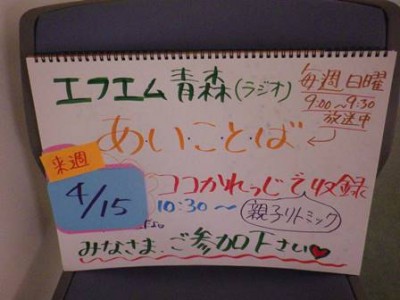 エフエム青森(ラジオ)
毎週日曜
9:00~9:30
放送中
あいことば
来週
4/15
ココカれっじで収録
10:30~
親子リトミック
みなさま、ご参加下さい♥